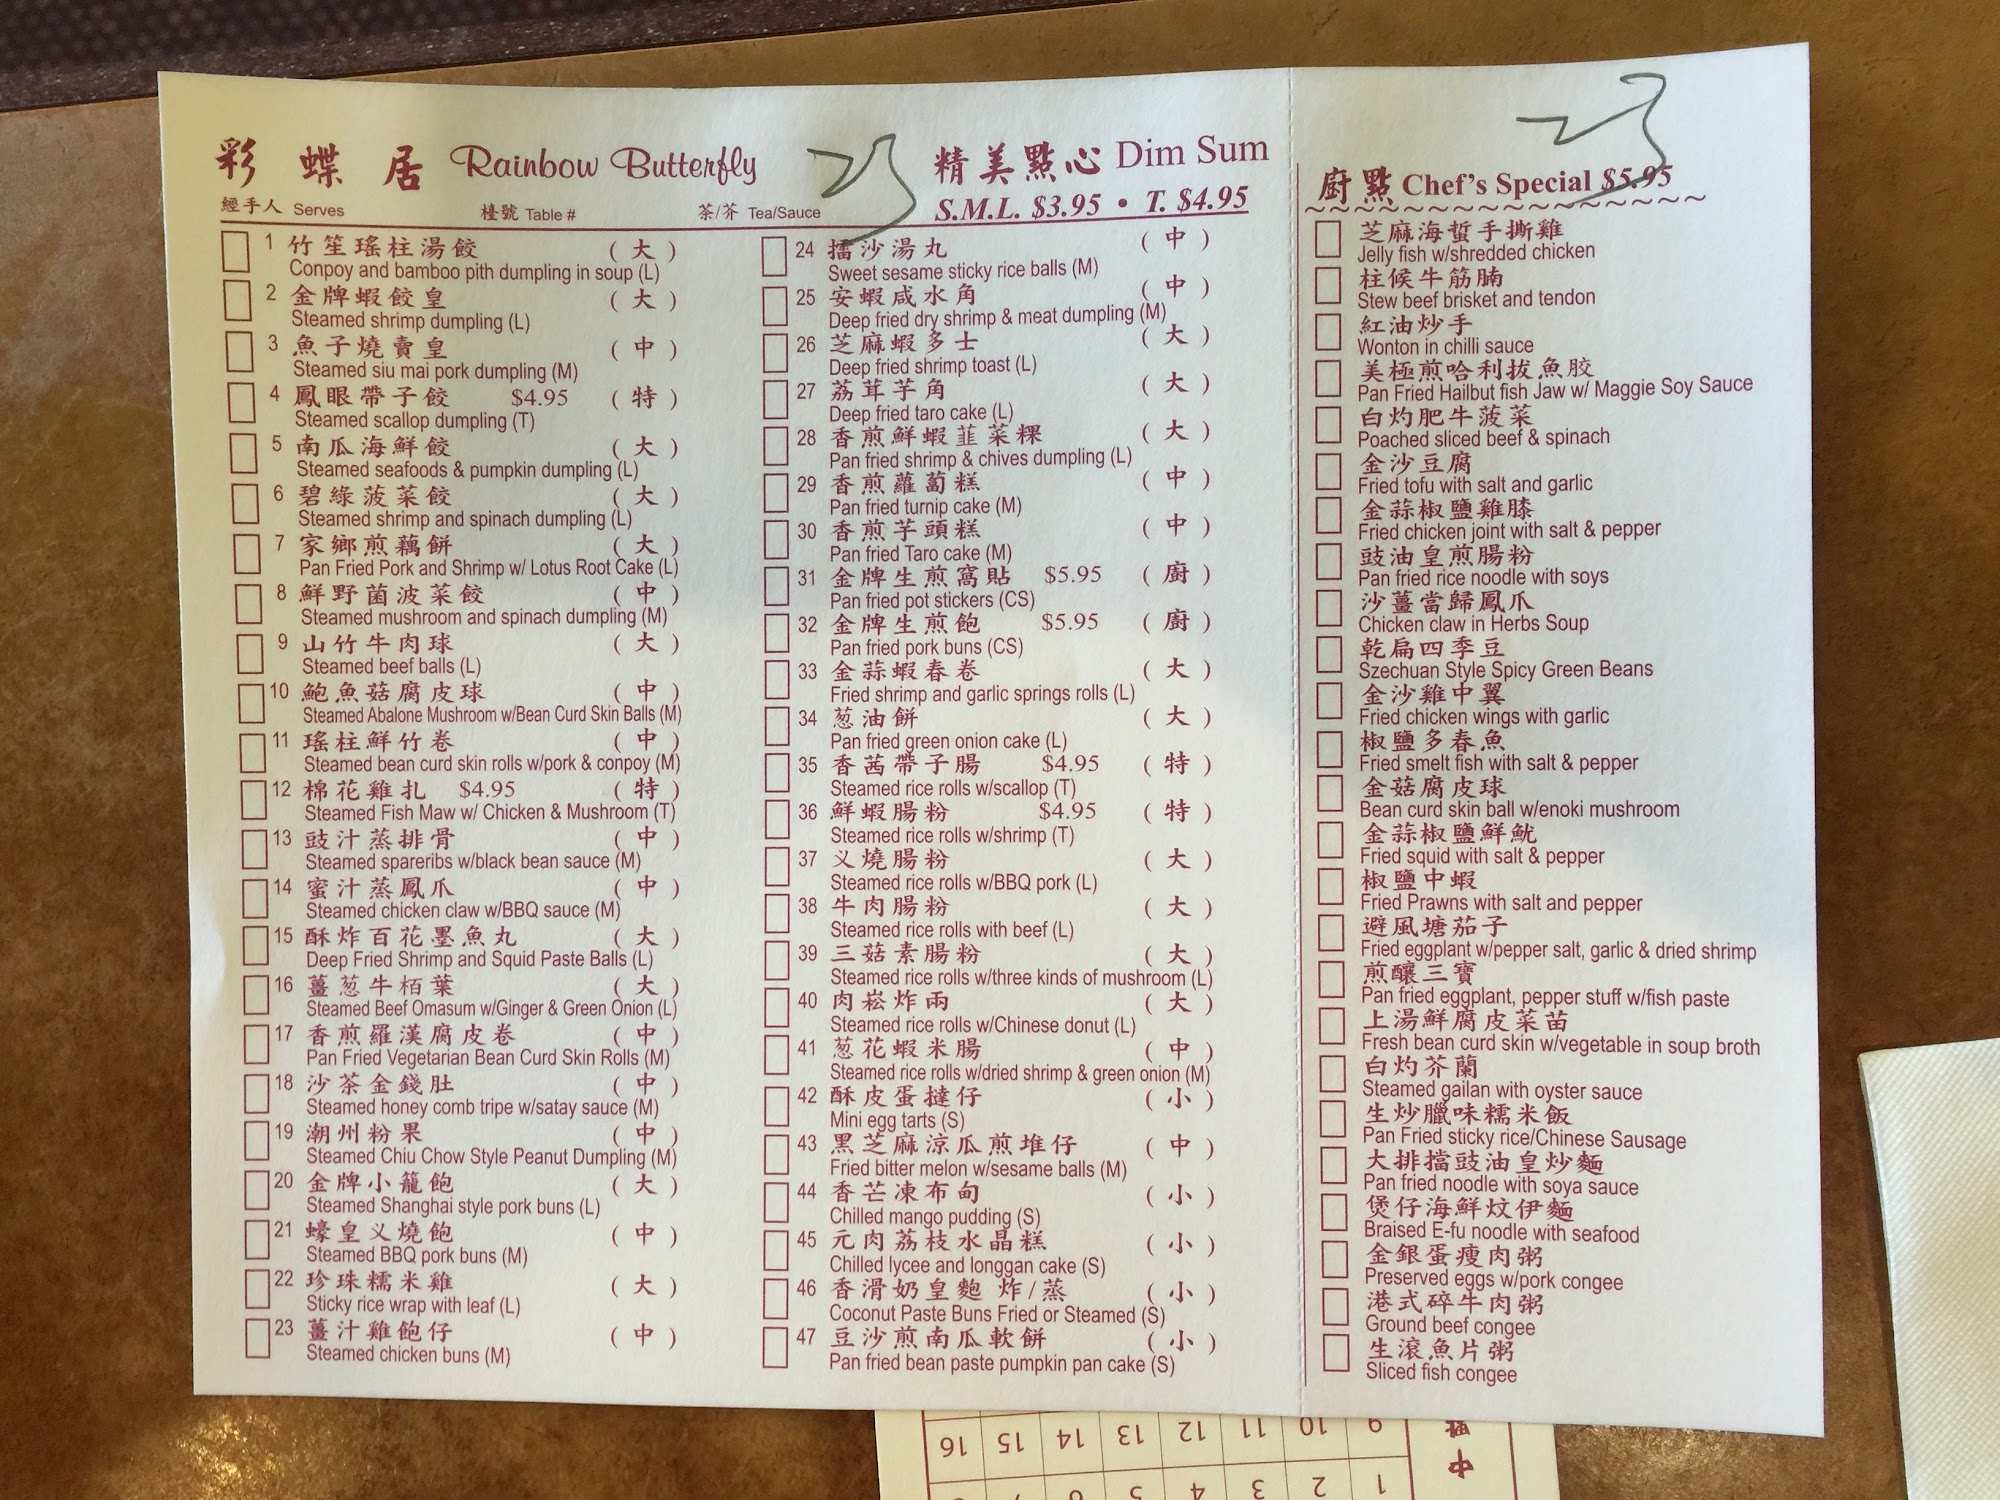 彩蝶居 Rainbow Butterfly
精美點心 Dim Sum
經手人 Serves 檯號 Table # 茶/芥 Tea/Sauce
S.M.L. $3.95 • T. $4.95
1 竹笙瑤柱湯餃 (大)
Conpoy and bamboo pith dumpling in soup (L)
2 金牌蝦餃皇 (大)
Steamed shrimp dumpling (L)
3 魚子燒賣皇 (中)
Steamed siu mai pork dumpling (M)
4 鳳眼帶子餃 $4.95 (特)
Steamed scallop dumpling (T)
5 南瓜海鮮餃 (大)
Steamed seafoods & pumpkin dumpling (L)
6 碧綠菠菜餃 (大)
Steamed shrimp and spinach dumpling (L)
7 家鄉煎藕餅 (大)
Pan Fried Pork and Shrimp w/ Lotus Root Cake (L)
8 鮮野菌菠菜餃 (中)
Steamed mushroom and spinach dumpling (M)
9 山竹牛肉球 (大)
Steamed beef balls (L)
10 鮑魚菇腐皮球 (中)
Steamed Abalone Mushroom w/Bean Curd Skin Balls (M)
11 瑤柱鮮竹卷 (中)
Steamed bean curd skin rolls w/pork & conpoy (M)
12 棉花雞扎 $4.95 (特)
Steamed Fish Maw w/ Chicken & Mushroom (T)
13 豉汁蒸排骨 (中)
Steamed spareribs w/black bean sauce (M)
14 蜜汁蒸鳳爪 (中)
Steamed chicken claw w/BBQ sauce (M)
15 酥炸百花墨魚丸 (大)
Deep Fried Shrimp and Squid Paste Balls (L)
16 薑葱牛栢葉 (大)
Steamed Beef Omasum w/Ginger & Green Onion (L)
17 香煎羅漢腐皮卷 (中)
Pan Fried Vegetarian Bean Curd Skin Rolls (M)
18 沙茶金錢肚 (中)
Steamed honey comb tripe w/satay sauce (M)
19 潮州粉果 (中)
Steamed Chiu Chow Style Peanut Dumpling (M)
20 金牌小籠飽 (大)
Steamed Shanghai style pork buns (L)
21 蠔皇义燒飽 (中)
Steamed BBQ pork buns (M)
22 珍珠糯米雞 (大)
Sticky rice wrap with leaf (L)
23 薑汁雞飽仔 (中)
Steamed chicken buns (M)
24 擂沙湯丸 (中)
Sweet sesame sticky rice balls (M)
25 安蝦咸水角 (中)
Deep fried dry shrimp & meat dumpling (M)
26 芝麻蝦多士 (大)
Deep fried shrimp toast (L)
27 荔茸芋角 (大)
Deep fried taro cake (L)
28 香煎鮮蝦韮菜粿 (大)
Pan fried shrimp & chives dumpling (L)
29 香煎蘿蔔糕 (中)
Pan fried turnip cake (M)
30 香煎芋頭糕 (中)
Pan fried Taro cake (M)
31 金牌生煎窩貼 $5.95 (廚)
Pan fried pot stickers (CS)
32 金牌生煎飽 $5.95 (廚)
Pan fried pork buns (CS)
33 金蒜蝦春卷 (大)
Fried shrimp and garlic springs rolls (L)
34 葱油餅 (大)
Pan fried green onion cake (L)
35 香茜帶子腸 $4.95 (特)
Steamed rice rolls w/scallop (T)
36 鮮蝦腸粉 $4.95 (特)
Steamed rice rolls w/shrimp (T)
37 义燒腸粉 (大)
Steamed rice rolls w/BBQ pork (L)
38 牛肉腸粉 (大)
Steamed rice rolls with beef (L)
39 三菇素腸粉 (大)
Steamed rice rolls w/three kinds of mushroom (L)
40 肉崧炸兩 (大)
Steamed rice rolls w/Chinese donut (L)
41 葱花蝦米腸 (中)
Steamed rice rolls w/dried shrimp & green onion (M)
42 酥皮蛋撻仔 (小)
Mini egg tarts (S)
43 黑芝麻涼瓜煎堆仔 (中)
Fried bitter melon w/sesame balls (M)
44 香芒凍布甸 (小)
Chilled mango pudding (S)
45 元肉荔枝水晶糕 (小)
Chilled lycee and longgan cake (S)
46 香滑奶皇麭 炸/蒸 (小)
Coconut Paste Buns Fried or Steamed (S)
47 豆沙煎南瓜軟餅 (小)
Pan fried bean paste pumpkin pan cake (S)
廚點 Chef's Special $5.95
芝麻海蜇手撕雞
Jelly fish w/shredded chicken
柱候牛筋腩
Stew beef brisket and tendon
紅油炒手
Wonton in chilli sauce
美極煎哈利拔魚胶
Pan Fried Hailbut fish Jaw w/ Maggie Soy Sauce
白灼肥牛菠菜
Poached sliced beef & spinach
金沙豆腐
Fried tofu with salt and garlic
金蒜椒鹽雞膝
Fried chicken joint with salt & pepper
豉油皇煎腸粉
Pan fried rice noodle with soys
沙薑當歸鳳爪
Chicken claw in Herbs Soup
乾扁四季豆
Szechuan Style Spicy Green Beans
金沙雞中翼
Fried chicken wings with garlic
椒鹽多春魚
Fried smelt fish with salt & pepper
金菇腐皮球
Bean curd skin ball w/enoki mushroom
金蒜椒鹽鮮魷
Fried squid with salt & pepper
椒鹽中蝦
Fried Prawns with salt and pepper
避風塘茄子
Fried eggplant w/pepper salt, garlic & dried shrimp
煎釀三寶
Pan fried eggplant, pepper stuff w/fish paste
上湯鮮腐皮菜苗
Fresh bean curd skin w/vegetable in soup broth
白灼芥蘭
Steamed gailan with oyster sauce
生炒臘味糯米飯
Pan Fried sticky rice/Chinese Sausage
大排擋豉油皇炒麵
Pan fried noodle with soya sauce
煲仔海鮮炆伊麵
Braised E-fu noodle with seafood
金銀蛋瘦肉粥
Preserved eggs w/pork congee
港式碎牛肉粥
Ground beef congee
生滾魚片粥
Sliced fish congee
16 15 14 13 12 11 10 9
中
5 4 3 2 1